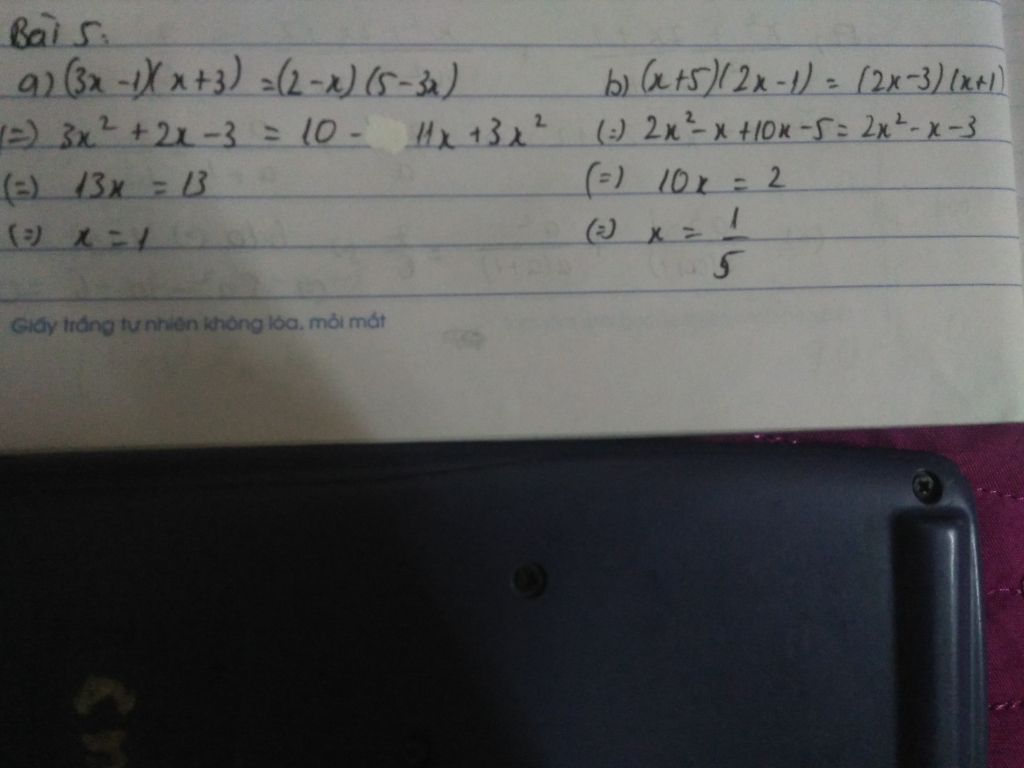 Bài 5:
a) (3x-1)(x+3) = (2-x)(5-3x)
(=) 3x² + 2x - 3 = 10 - 11x + 3x²
(=) 13x = 13
(=) x = 1
b) (x+5)(2x-1) = (2x-3)(x+1)
(=) 2x² - x + 10x - 5 = 2x² - x - 3
(=) 10x = 2
(=) x = 1/5
Giấy trắng tự nhiên không lóa, mỏi mắt